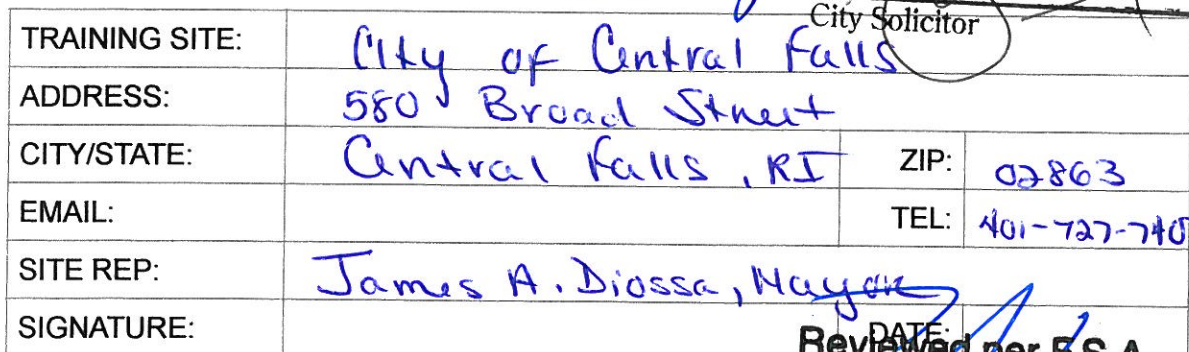 City Solicitor
TRAINING SITE: City of Central Falls
ADDRESS: 580 Broad Street
CITY/STATE: Central Falls, RI ZIP: 02863
EMAIL: TEL: 401-727-740
SITE REP: James A. Diossa, Mayor
SIGNATURE: DATE:
Reviewed per E.S.A.